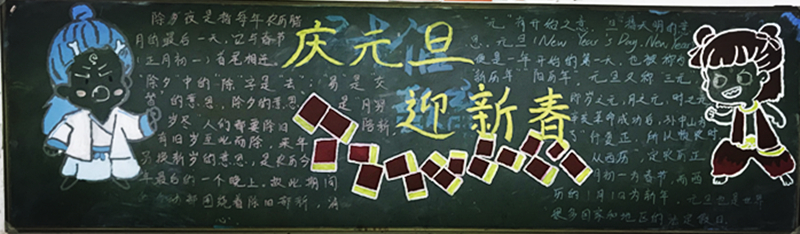 庆元旦
迎新春
除夕夜是指每年农历腊
月的最后一天,它与春节
(正月初一)首尾相连
"除夕"中的"除"字是"去",易是交
的意思,除夕的意思是月穷
岁尽,人们都要除旧
有旧岁至此而除,来年
另换新岁的意思,是农历今
年最后的一个晚上。故此期间
活动都围绕着除旧部新,消
"元"有开始之意,"旦"指天明的意
思。元旦(New Year's Day, New Year)
便是一年开始的第一天,也被称为
新历年 阳历年。元旦又称三元
岁之元,月之元,时之元
革命成功后,孙中山为
行夏正,所以顺农时
从西历,定农历正
月初一为春节,而西
历的1月1日为新年,元旦也是世界
很多国家和地区的法定假日